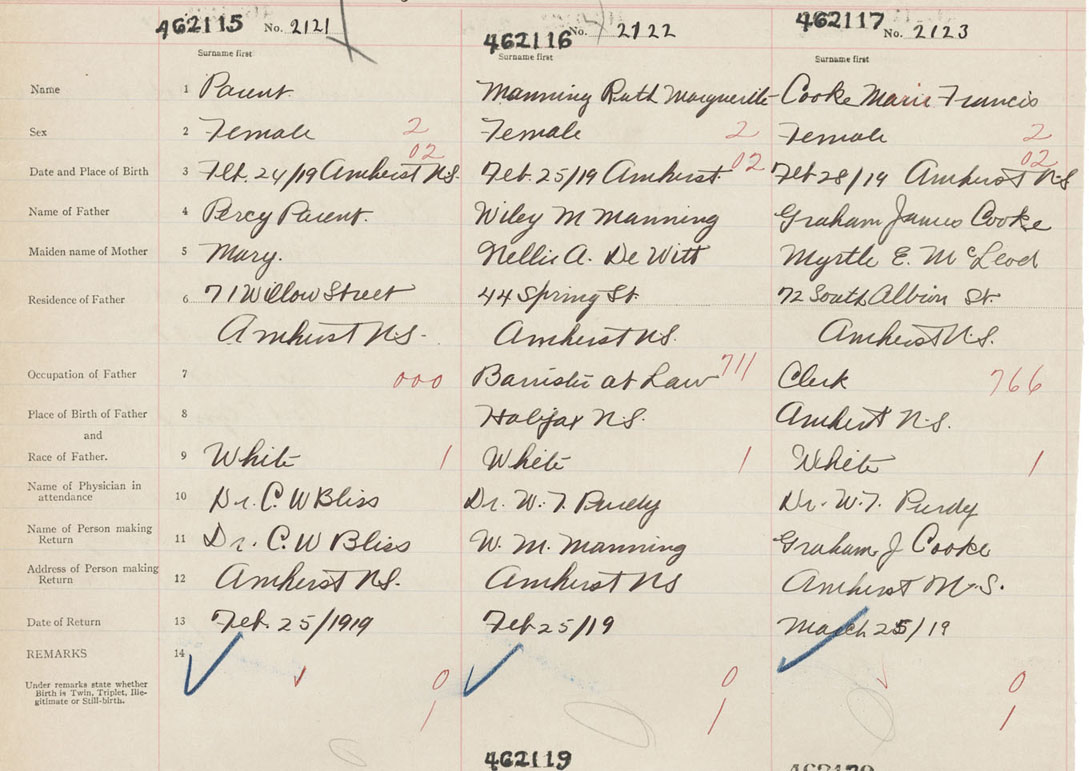 462115 No. 2121 462116 No. 2122 462117 No. 2123
Surname first Surname first Surname first
Name 1 Parent Manning Ruth Marguerite Cooke Marie Francis
Sex 2 Female 2 Female 2 Female 2
02 02 02
Date and Place of Birth 3 Feb. 24/19 Amherst N.S. Feb. 25/19 Amherst. Feb 28/19 Amherst N.S
Name of Father 4 Percy Parent. Wiley M Manning Graham James Cooke
Maiden name of Mother 5 Mary. Nellie A. De Witt Myrtle E. McLeod
Residence of Father 6 71 Willow Street 44 Spring St. 72 South Albion St.
Amherst N.S. Amherst N.S. Amherst N.S.
Occupation of Father 7 000 Barrister at Law 711 Clerk 766
Place of Birth of Father 8 Halifax N.S. Amherst N.S.
and
Race of Father. 9 White 1 White 1 White 1
Name of Physician in attendance 10 Dr. C. W Bliss Dr. W. T. Purdy Dr. W. T. Purdy
Name of Person making Return 11 Dr. C. W Bliss W. M. Manning Graham J Cooke
Address of Person making Return 12 Amherst N.S. Amherst NS Amherst N.S.
Date of Return 13 Feb. 25/1919 Feb 25/19 March 25/19
REMARKS 14
Under remarks state whether 0 0 0
Birth is Twin, Triplet, Ille-
gitimate or Still-birth. 1 1 1
462119